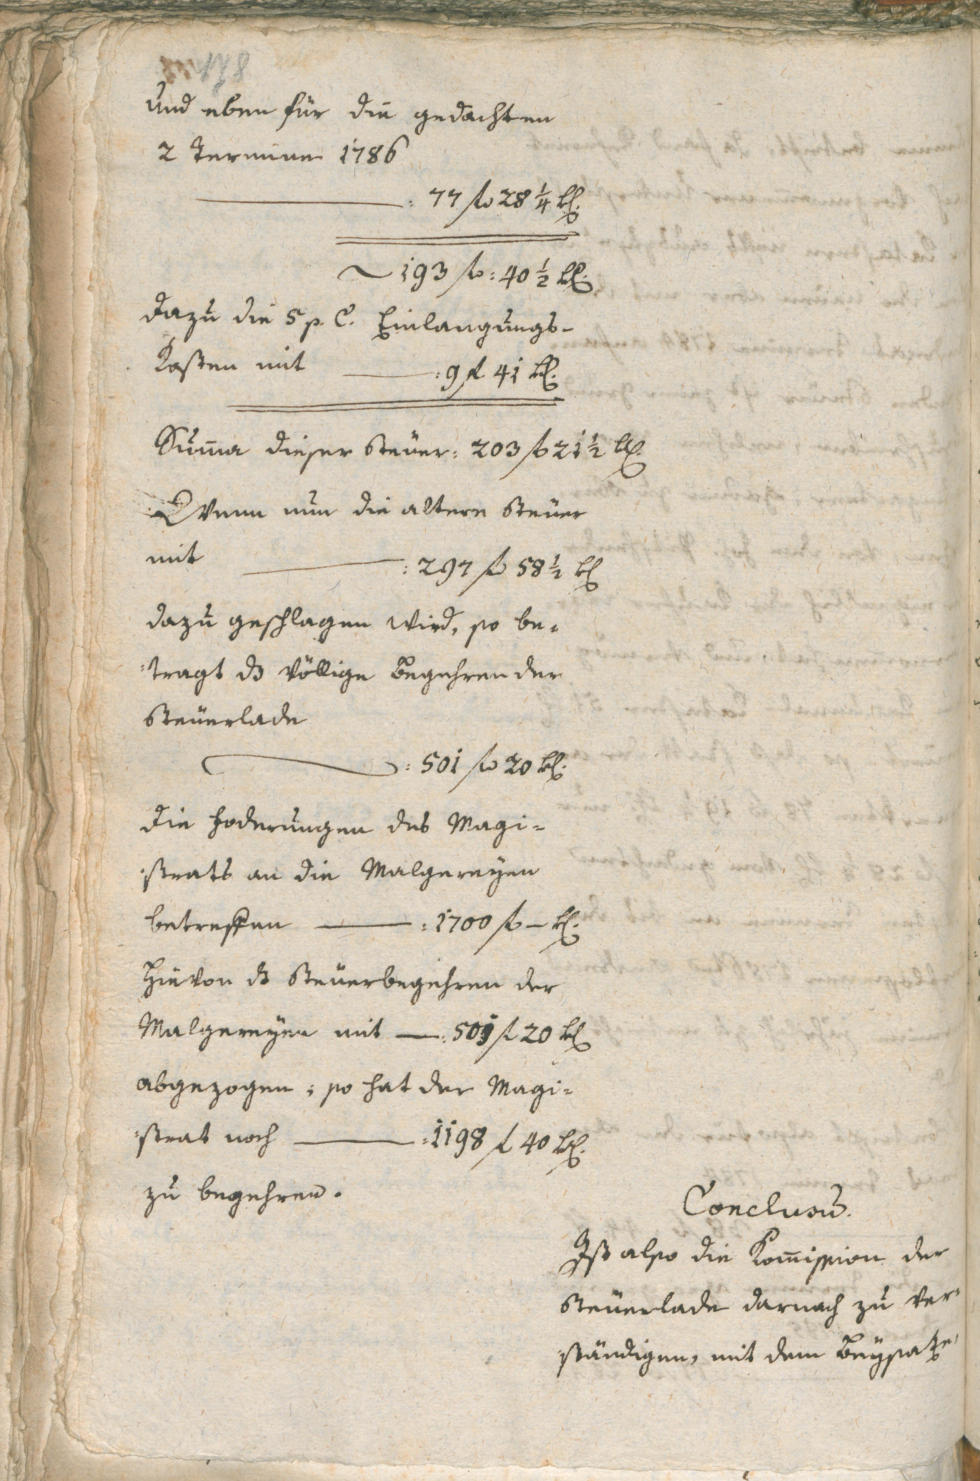 178
und eben für die gedachten
2 Termine 1786
: 77 fl 28 1/4 kr.
193 fl: 40 1/2 kr.
dazu die 5 p C. Einlangungs-
Kosten mit : 9 fl 41 kr.
Suma dieser Steuer: 203 fl 21 1/2 kr
Wenn nun die altere Steuer
mit : 297 fl 58 1/2 kr
dazu geschlagen wird, so be-
tragt ds völlige Begehren der
Steuerlade
: 501 fl 20 kr.
Die Foderungen des Magi-
strats an die Malgereyen
betreffen : 1700 fl – kr.
Hievon ds Steuerbegehren der
Malgereyen mit : 501 fl 20 kr
abgezogen; so hat der Magi-
strat noch : 1198 fl 40 kr.
zu begehren.
Conclusū.
Ist also die Komission der
Steuerlade darnach zu ver-
ständigen, mit dem Beysatze